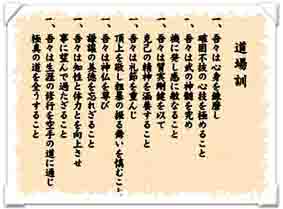 道場訓
一、吾々は心身を錬磨し
確固不抜の心技を極めること
一、吾々は武の神髄を究め
機に発し感に敏なること
一、吾々は質実剛健を以て
克己の精神を涵養すること
一、吾々は礼節を重んじ
頂上を敬し粗暴の振る舞を慎むこと
一、吾々は神仏を尊び
謙譲の美徳を忘れざること
一、吾々は知性と体力とを向上させ
事に望んで過たざること
一、吾々は生涯の修行を空手の道に通じ
極真の道を全うすること